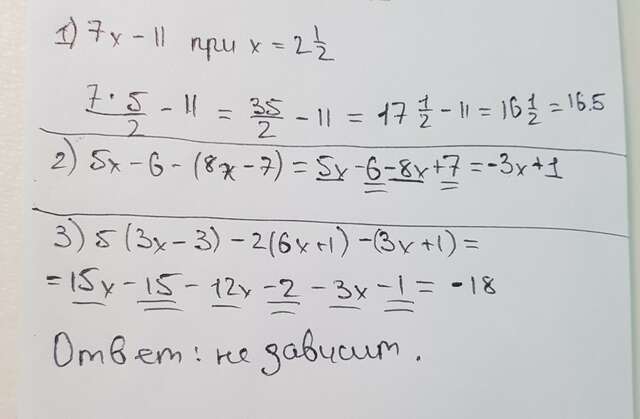 1) 7x - 11 при x = 2 1/2
7·5/2 - 11 = 35/2 - 11 = 17 1/2 - 11 = 16 1/2 = 16.5
2) 5x - 6 - (8x - 7) = 5x - 6 - 8x + 7 = -3x + 1
3) 5 (3x - 3) - 2(6x+1) - (3x+1) =
= 15x - 15 - 12x - 2 - 3x - 1 = -18
Ответ: не зависит.